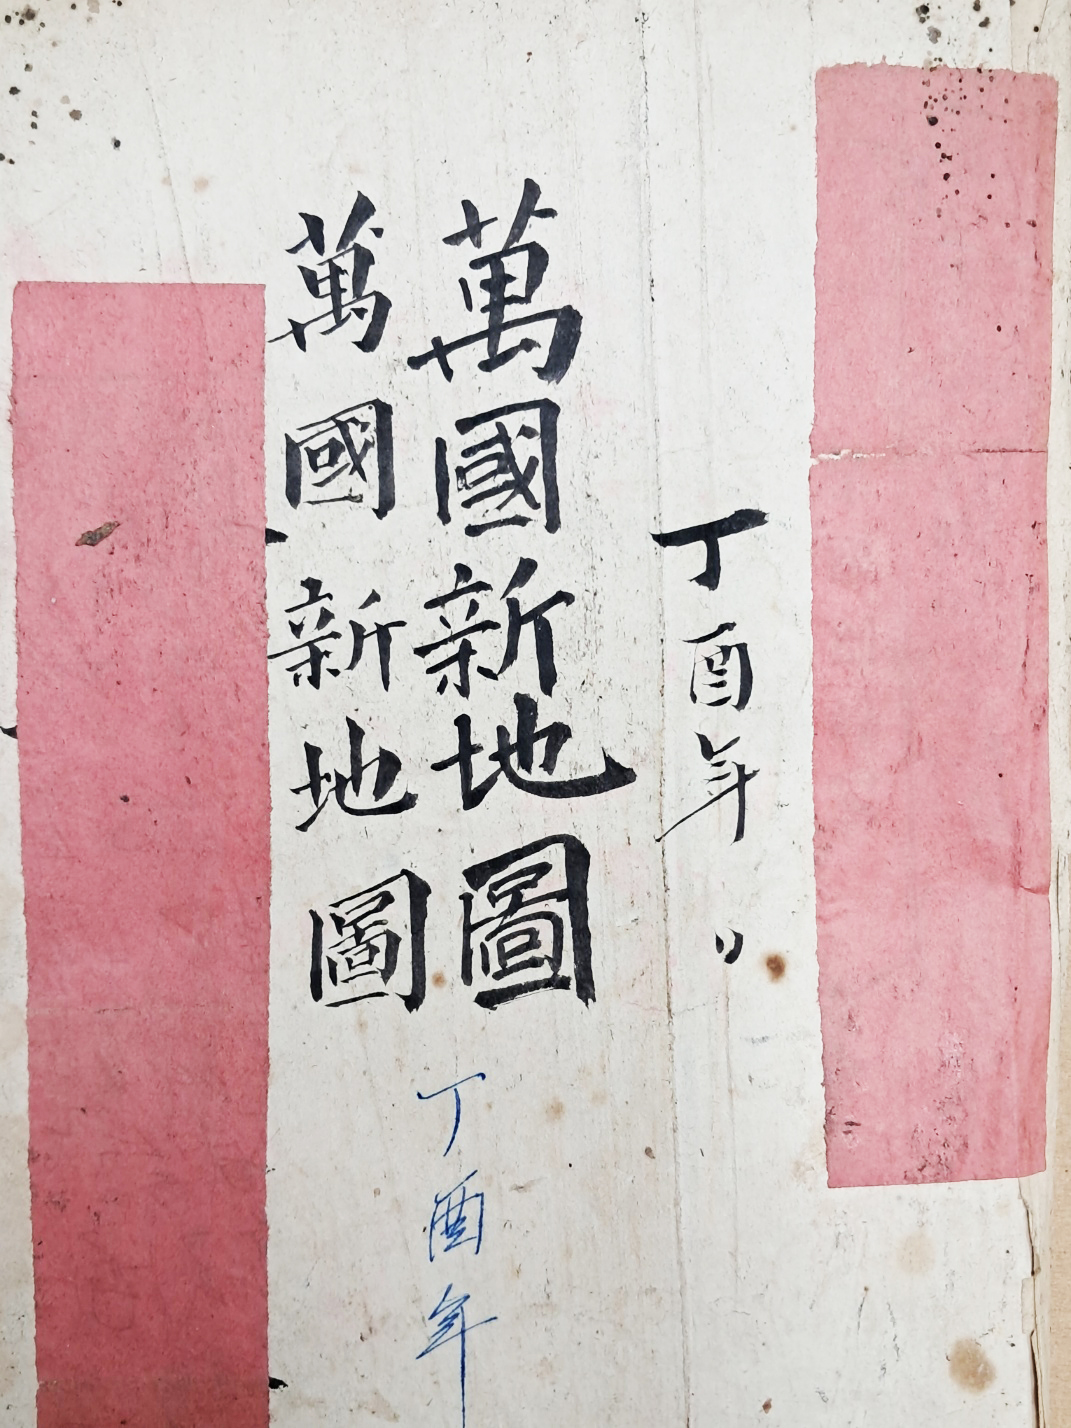 丁酉年
萬國新地圖
萬國新地圖
丁酉年